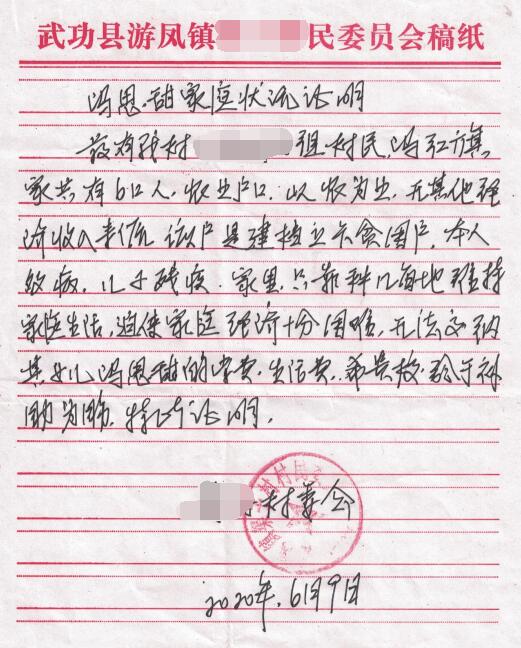 武功县游凤镇 民委员会稿纸
冯思甜家庭状况证明
兹有我村 组村民,冯红旗,
家共有6口人,农业户口.以农为生,无其他经
济收入来源 该户是建档立卡贫困户.本人
致病,儿子残疾.家里只靠种几亩地维持
家庭生活,迫使家庭经济十分困难,无法交纳
其女儿冯思甜的学费.生活费.希贵校.给予补
助为盼.特此证明.
村委会
村村民
2020年.6月9日